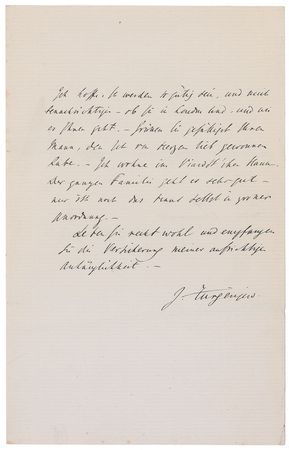 Ich hoffe, Sie werden so gütig sein, und mich
benachrichtigen – ob Sie in London sind – und wie
es Ihnen geht. – Grüssen Sie gefälligst Ihren
Mann, den ich von Herzen lieb gewonnen
habe. – Ich wohne im Viardot'schen Hause.
Der ganzen Familie geht es sehr gut –
nur ist noch das Haus selbst in grosser
Unordnung. –
Leben Sie recht wohl und empfangen
Sie die Versicherung meiner aufrichtigen
Anhänglichkeit. –
J. Turgénjew.